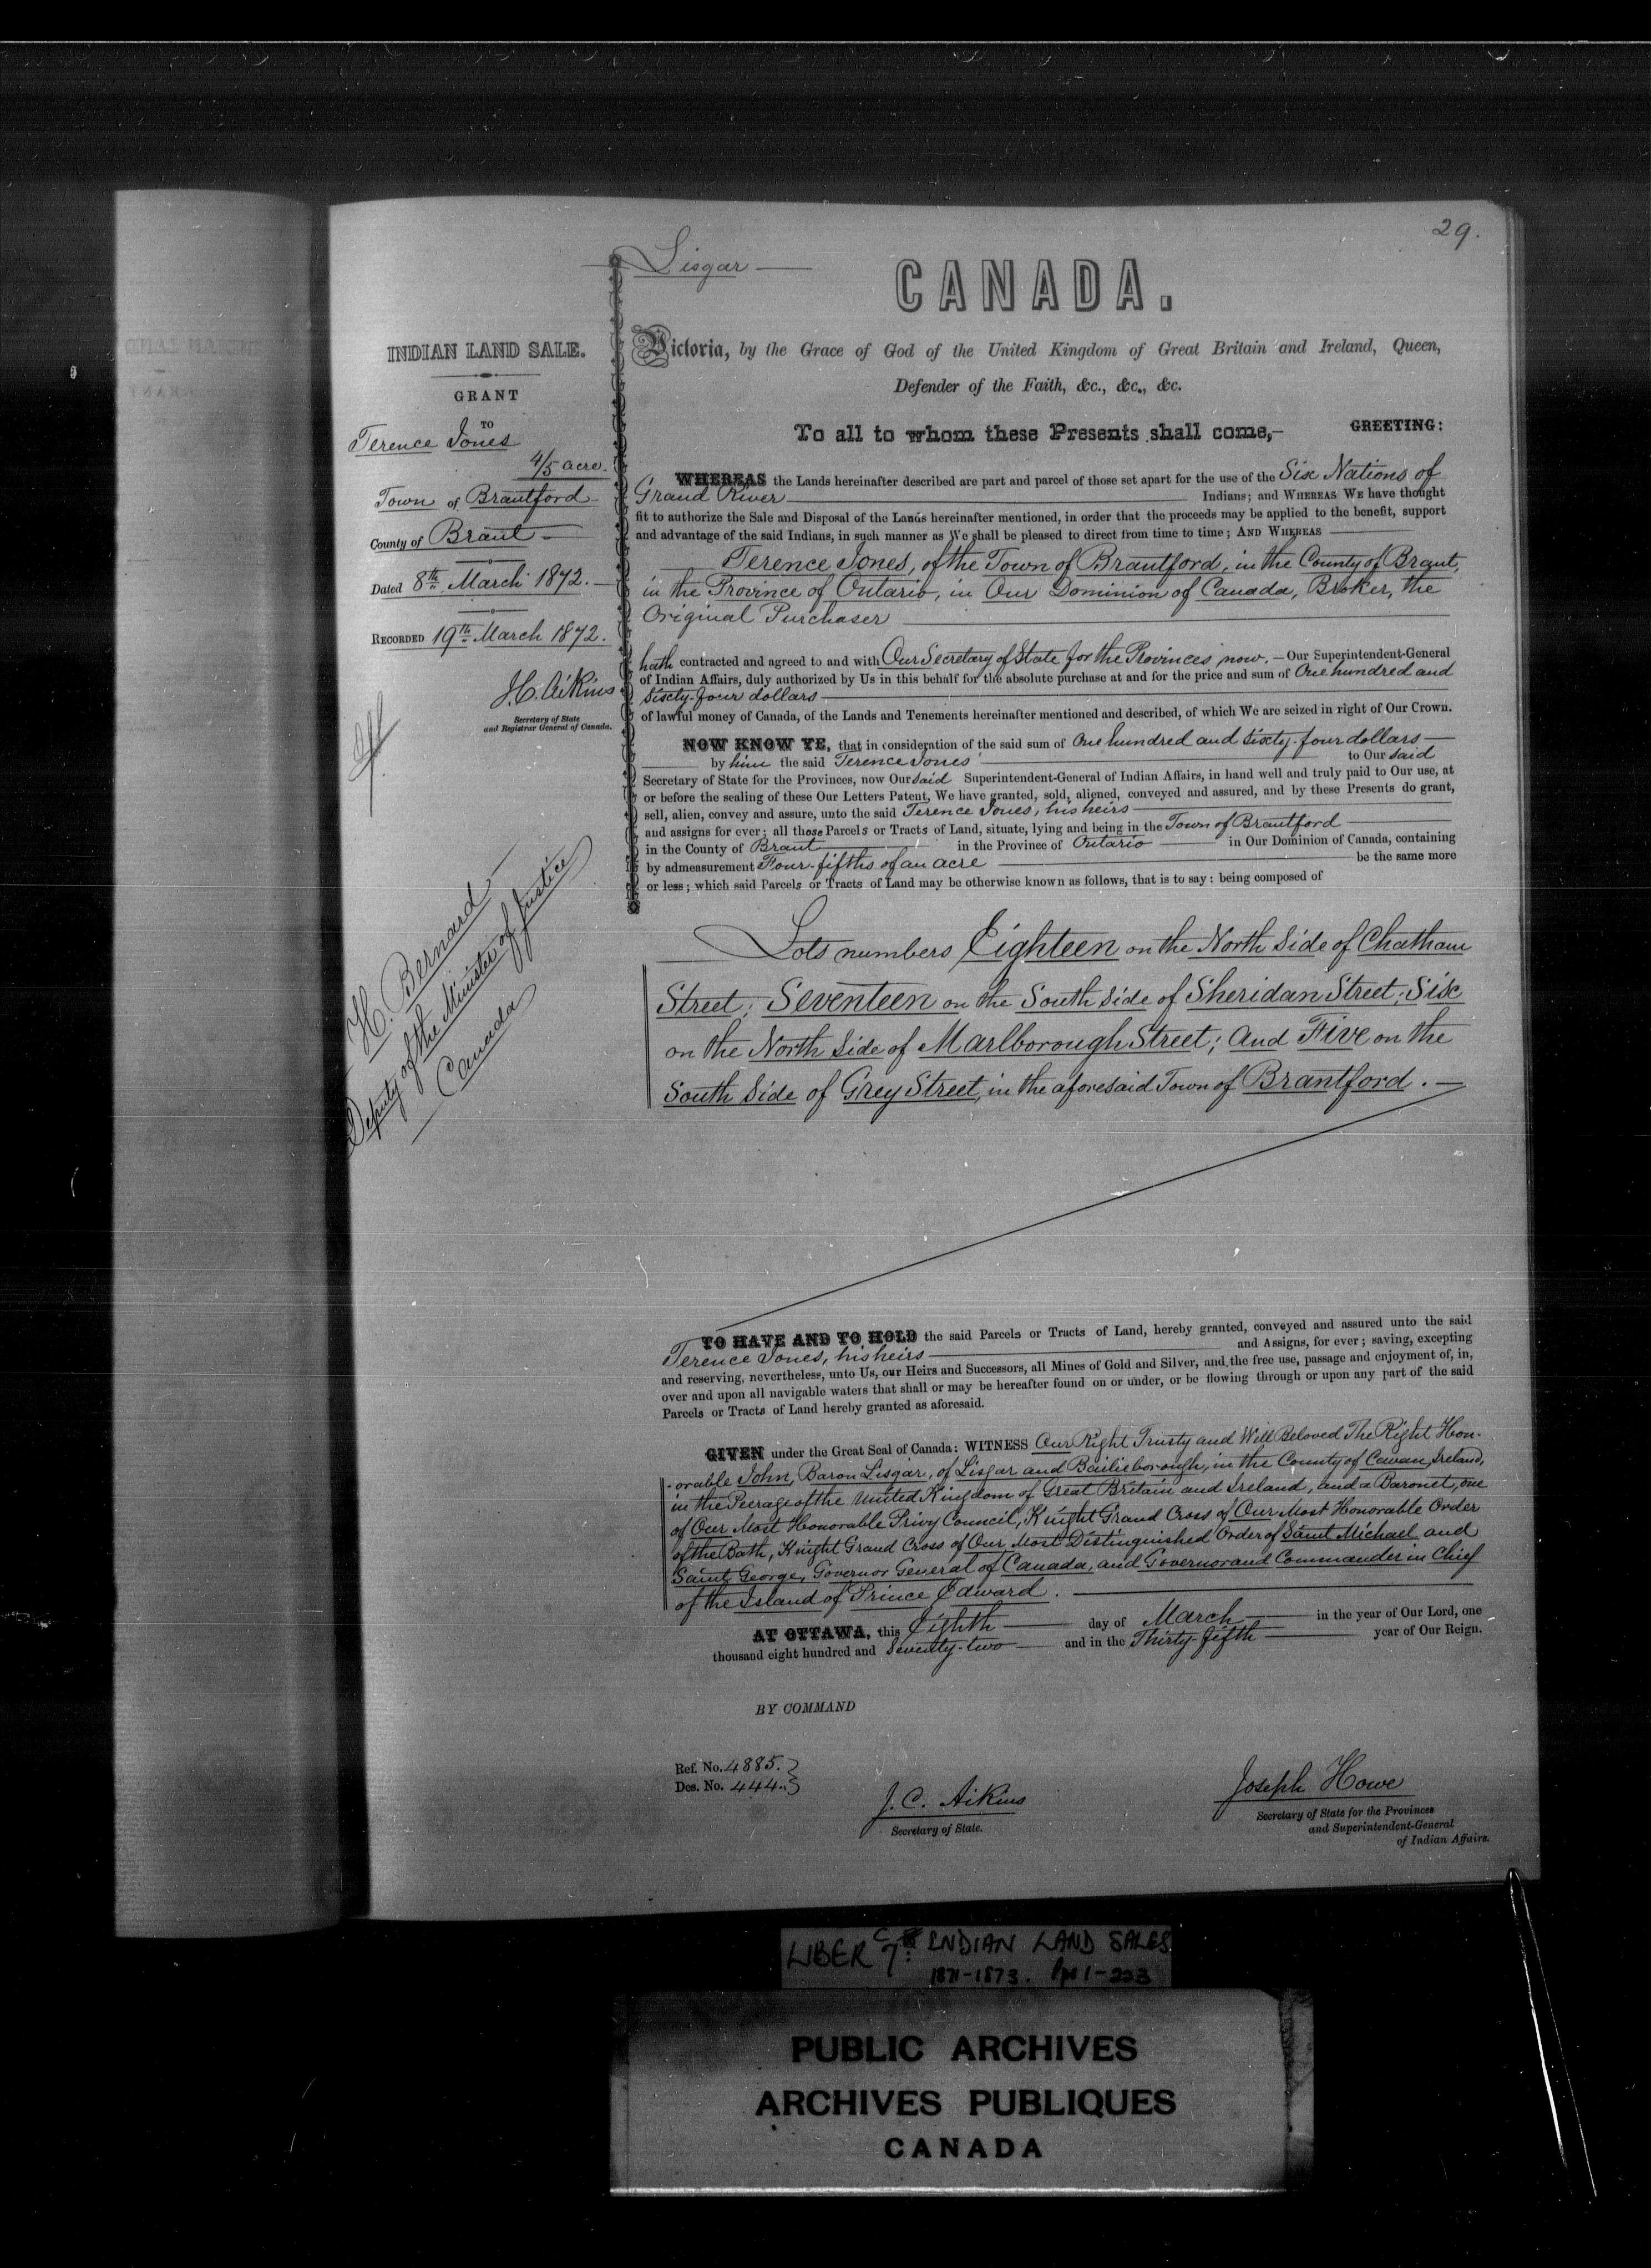 29.
Lisgar
CANADA.
INDIAN LAND SALE.
GRANT
TO
Terence Jones
4/5 acre.
Town of Brantford
County of Brant
Dated 8th March 1872.
RECORDED 19th March 1872.
J.C. Aikins
Secretary of State
and Registrar General of Canada.
H. Bernard
Deputy of the Minister of Justice
Canada
Victoria, by the Grace of God of the United Kingdom of Great Britain and Ireland, Queen,
Defender of the Faith, &c., &c., &c.
To all to whom these Presents shall come,— GREETING:
WHEREAS the Lands hereinafter described are part and parcel of those set apart for the use of the Six Nations of
Grand River Indians; and WHEREAS WE have thought
fit to authorize the Sale and Disposal of the Lands hereinafter mentioned, in order that the proceeds may be applied to the benefit, support
and advantage of the said Indians, in such manner as We shall be pleased to direct from time to time; AND WHEREAS
Terence Jones, of the Town of Brantford, in the County of Brant,
in the Province of Ontario, in Our Dominion of Canada, Broker, the
Original Purchaser
hath contracted and agreed to and with Our Secretary of State for the Provinces now.—Our Superintendent-General
of Indian Affairs, duly authorized by Us in this behalf for the absolute purchase at and for the price and sum of One hundred and
sixty-four dollars
of lawful money of Canada, of the Lands and Tenements hereinafter mentioned and described, of which We are seized in right of Our Crown.
NOW KNOW YE, that in consideration of the said sum of One hundred and sixty-four dollars
by him the said Terence Jones to Our said
Secretary of State for the Provinces, now Our said Superintendent-General of Indian Affairs, in hand well and truly paid to Our use, at
or before the sealing of these Our Letters Patent, We have granted, sold, aliened, conveyed and assured, and by these Presents do grant,
sell, alien, convey and assure, unto the said Terence Jones, his heirs
and assigns for ever; all those Parcels or Tracts of Land, situate, lying and being in the Town of Brantford
in the County of Brant in the Province of Ontario in Our Dominion of Canada, containing
by admeasurement Four-fifths of an acre be the same more
or less; which said Parcels or Tracts of Land may be otherwise known as follows, that is to say: being composed of
Lots numbers Eighteen on the North Side of Chatham
Street; Seventeen on the South Side of Sheridan Street; Six
on the North Side of Marlborough Street; And Five on the
South Side of Grey Street, in the aforesaid Town of Brantford.
TO HAVE AND TO HOLD the said Parcels or Tracts of Land, hereby granted, conveyed and assured unto the said
Terence Jones, his heirs and Assigns, for ever; saving, excepting
and reserving, nevertheless, unto Us, our Heirs and Successors, all Mines of Gold and Silver, and the free use, passage and enjoyment of, in,
over and upon all navigable waters that shall or may be hereafter found on or under, or be flowing through or upon any part of the said
Parcels or Tracts of Land hereby granted as aforesaid.
GIVEN under the Great Seal of Canada: WITNESS Our Right Trusty and Well Beloved The Right Hon-
-orable John, Baron Lisgar, of Lisgar and Bailieborough, in the County of Cavan, Ireland,
in the Peerage of the United Kingdom of Great Britain and Ireland, and a Baronet, one
of Our Most Honorable Privy Council, Knight Grand Cross of Our Most Honorable Order
of the Bath, Knight Grand Cross of Our Most Distinguished Order of Saint Michael and
Saint George, Governor General of Canada, and Governor and Commander in Chief
of the Island of Prince Edward.
AT OTTAWA, this Eighth day of March in the year of Our Lord, one
thousand eight hundred and Seventy-two and in the Thirty-fifth year of Our Reign.
BY COMMAND
Ref. No. 4885.
Des. No. 444.
J.C. Aikins
Secretary of State.
Joseph Howe
Secretary of State for the Provinces
and Superintendent-General
of Indian Affairs.
LIBER C 7: INDIAN LAND SALES
1871-1873. Pgs 1-223
PUBLIC ARCHIVES
ARCHIVES PUBLIQUES
CANADA